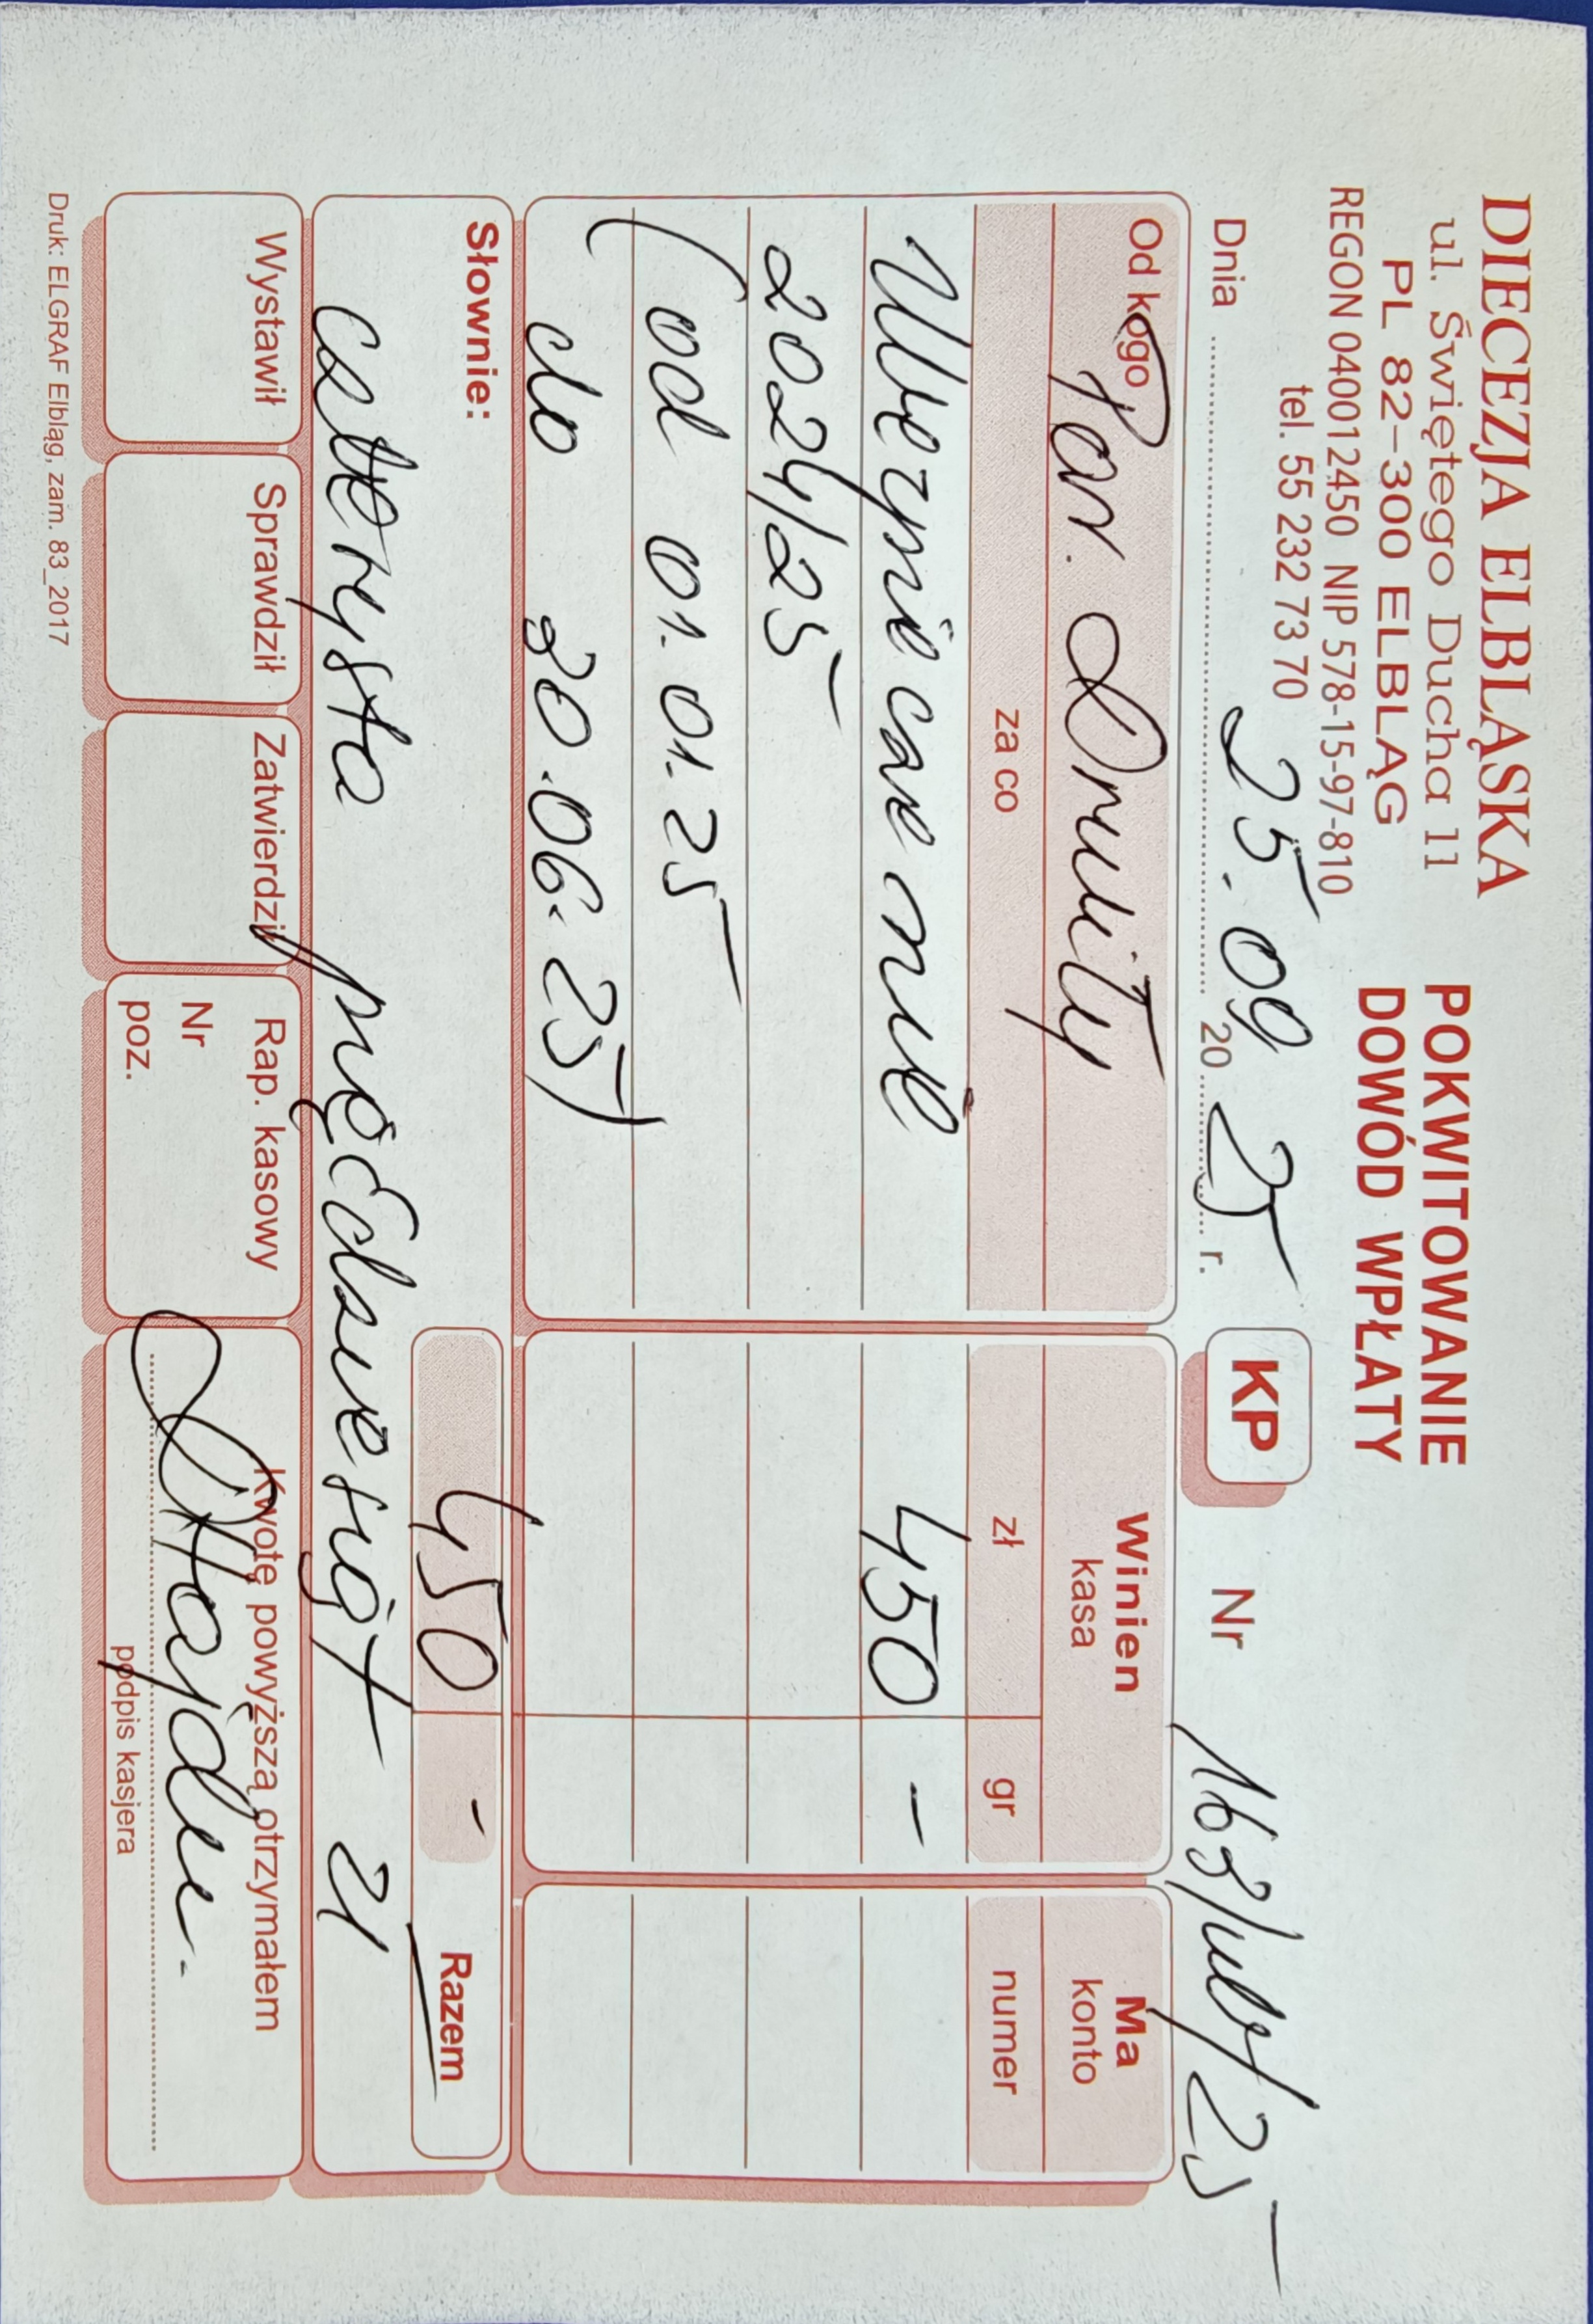 DIECEZJA ELBLĄSKA
ul. Świętego Ducha 11
PL 82-300 ELBLĄG
REGON 040012450 NIP 578-15-97-810
tel. 55 232 73 70
POKWITOWANIE
DOWÓD WPŁATY
Dnia 25.09.2025 r.
KP
Nr 163/ub/25
Od kogo Par. Drulity
Winien
kasa
Ma
konto
za co
zł
gr
numer
Ubezpieczenie
450 -
2024/25
(od 01.01.25
do 30.06.25)
Słownie:
450 -
Razem
czterysta pięćdziesiąt zł
Wystawił
Sprawdził
Zatwierdził
Rap. kasowy
Nr
poz.
Kwotę powyższą otrzymałem
podpis kasjera
Druk: ELGRAF Elbląg, zam. 83_2017